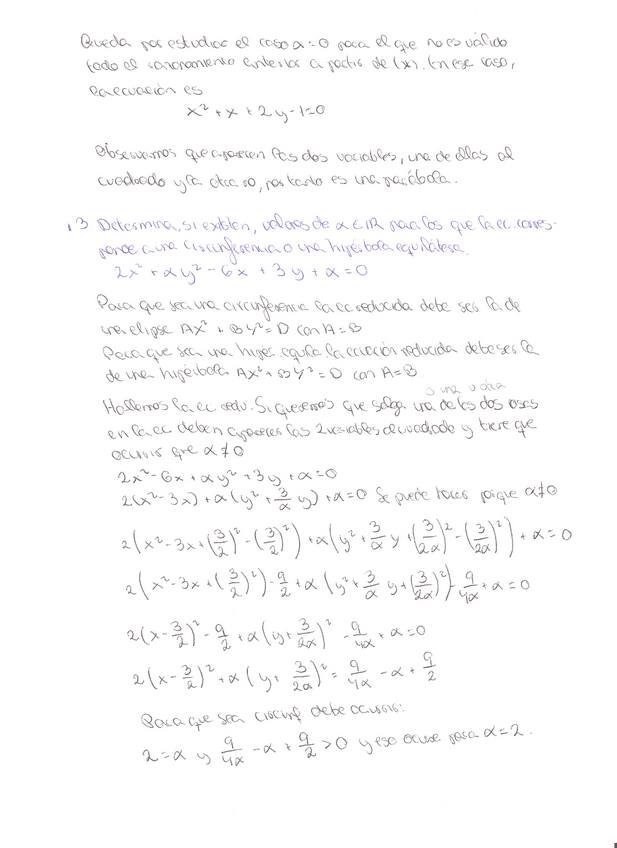 Queda por estudiar el caso α=0 para el que no es válido
todo el razonamiento anterior a partir de (*). En ese caso,
la ecuación es
x² + x + 2y - 1 = 0
Observamos que aparecen las dos variables, una de ellas al
cuadrado y la otra no, por tanto es una parábola.
3 Determina, si existen, valores de α ∈ ℝ para los que la ec. corres-
ponde a una circunferencia o una hipérbola equilátera.
2x² + αy² - 6x + 3y + α = 0
Para que sea una circunferencia la ec reducida debe ser la de
una elipse Ax² + By² = D con A = B
Para que sea una hipér. equilá. la ecuación reducida debe ser la
de una hipérbola Ax² + By² = D con A = B
o una u otra
Hallemos la ec redu. Si queremos que salga una de las dos cosas
en la ec deben aparecer las 2 variables al cuadrado y tiene que
ocurrir que α ≠ 0
2x² - 6x + αy² + 3y + α = 0
2(x² - 3x) + α(y² + 3/α y) + α = 0 Se puede hacer porque α ≠ 0
2(x² - 3x + (3/2)² - (3/2)²) + α(y² + 3/α y + (3/2α)² - (3/2α)²) + α = 0
2(x² - 3x + (3/2)²) - 9/2 + α(y² + 3/α y + (3/2α)²) - 9/4α + α = 0
2(x - 3/2)² - 9/2 + α(y + 3/2α)² - 9/4α + α = 0
2(x - 3/2)² + α(y + 3/2α)² = 9/4α - α + 9/2
Para que sea circunf debe ocurrir:
2 = α y 9/4α - α + 9/2 > 0 y eso ocurre para α = 2.